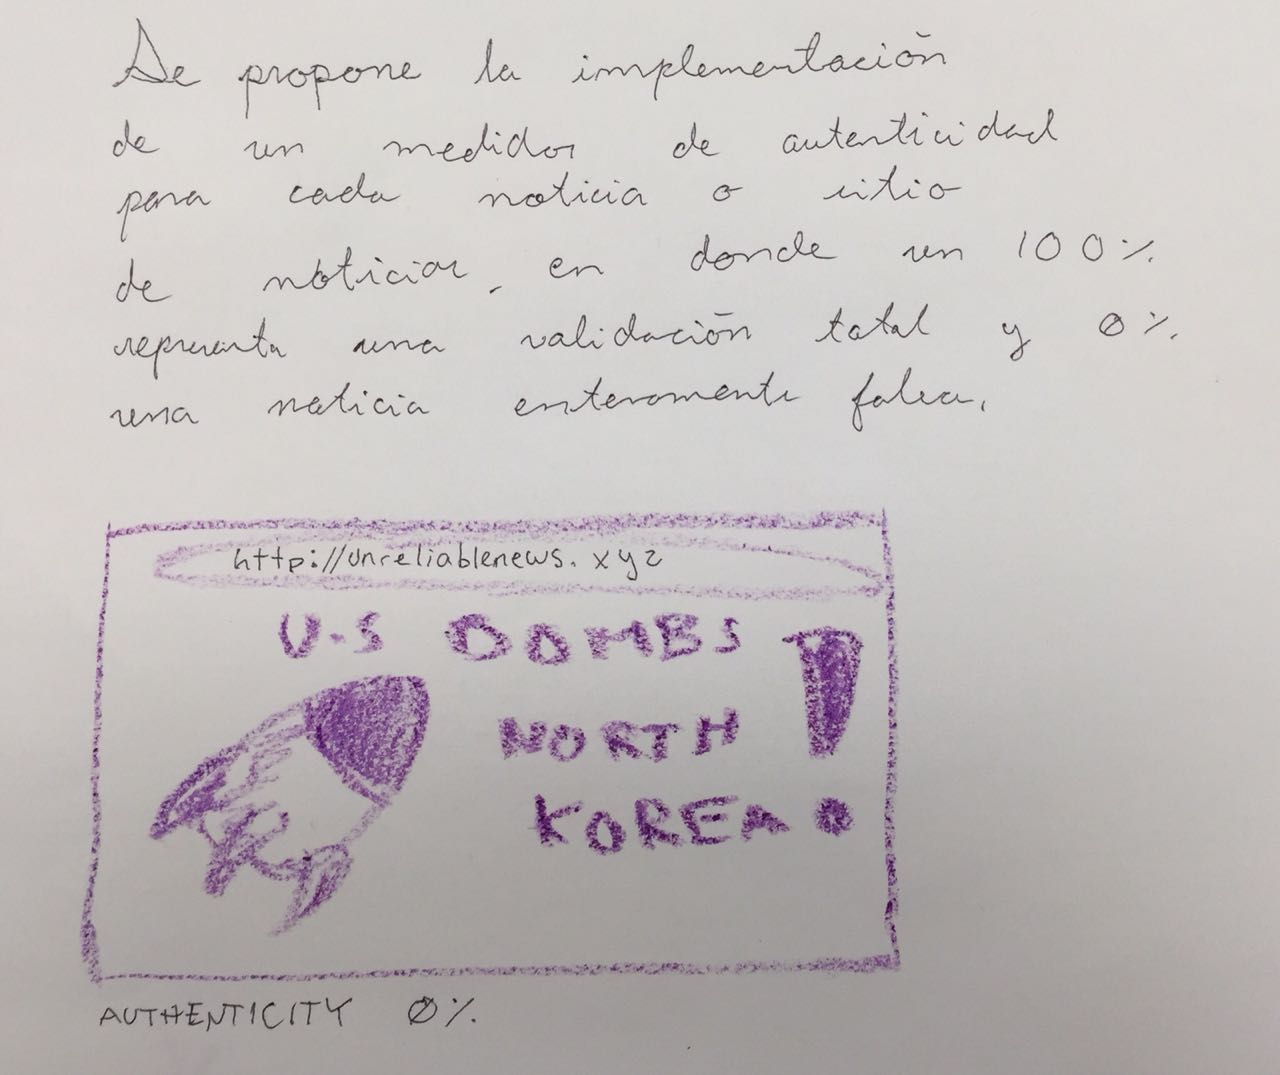 Se propone la implementación
de un medidor de autenticidad
para cada noticia o sitio
de noticias, en donde un 100%
representa una validación total y 0%
una noticia enteramente falsa.
http://unreliablenews.xyz
U.S BOMBS
NORTH
KOREA!
AUTHENTICITY 0%